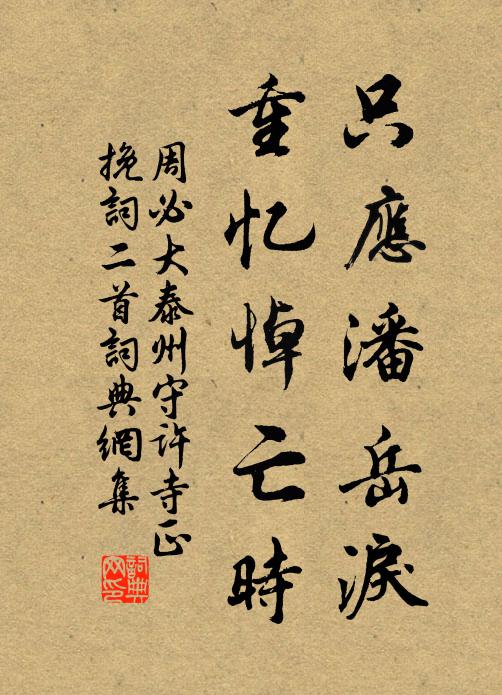 只應潘岳淚
重忆悼亡時
周必大泰州守許寺正
挽詞二首詞典網集
詞典
网印